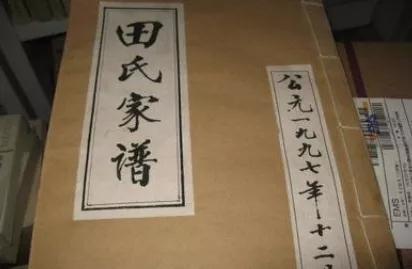 田氏家谱
公元一九九七年十二
EMS